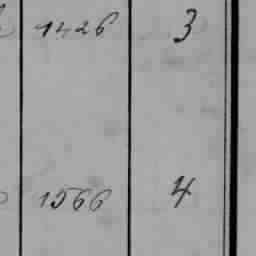 1426 3
1566 4